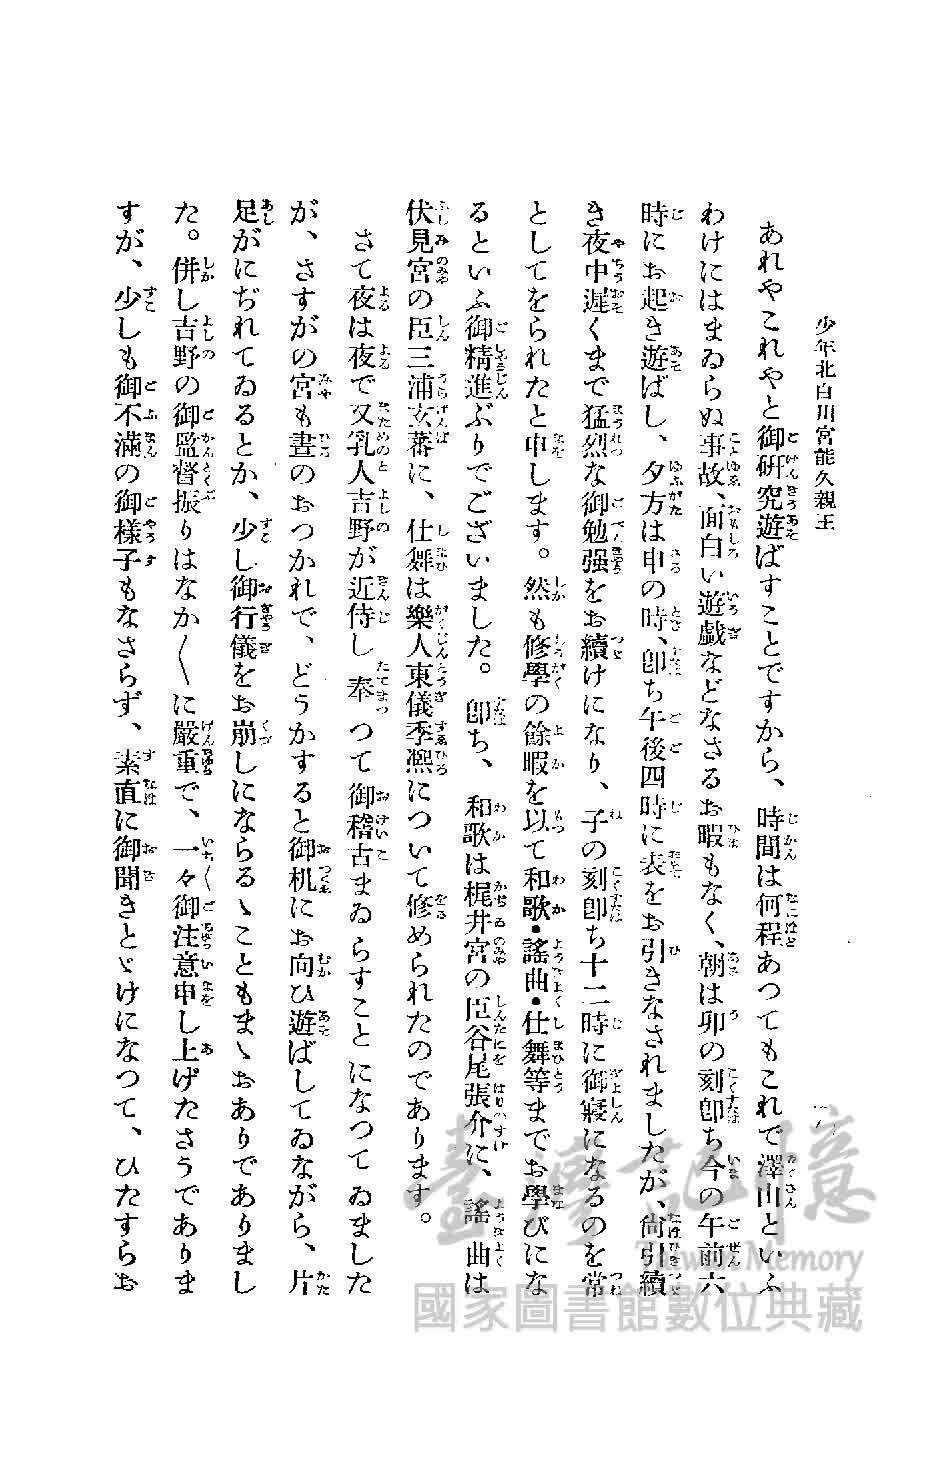 少年北白川宮能久親王
あれやこれやと御研究遊ばすことですから、時間は何程あつてもこれで澤山といふ
わけにはまゐらぬ事故、面白い遊戲などなさるお暇もなく、朝は卯の刻卽ち今の午前六
時にお起き遊ばし、夕方は申の時、卽ち午後四時に表をお引きなされましたが、尙引續
き夜中遲くまで猛烈な御勉强をお續けになり、子の刻卽ち十二時に御寢になるのを常
としてをられたと申します。然も修學の餘暇を以て和歌・謠曲・仕舞等までお學びにな
るといふ御精進ぶりでございました。卽ち、和歌は梶井宮の臣谷尾張介に、謠曲は
伏見宮の臣三浦玄蕃に、仕舞は樂人東儀季凞について修められたのであります。
さて夜は夜で又乳人吉野が近侍し奉つて御稽古まゐらすことになつてゐました
が、さすがの宮も晝のおつかれで、どうかすると御机にお向ひ遊ばしてゐながら、片
足がにぢれてゐるとか、少し御行儀をお崩しにならるゝこともまゝおありでありまし
た。倂し吉野の御監督振りはなか〳〵に嚴重で、一々御注意申し上げたさうでありま
すが、少しも御不滿の御樣子もなさらず、素直に御聞きとゞけになつて、ひたすらお
臺灣記憶
Taiwan Memory
國家圖書館數位典藏